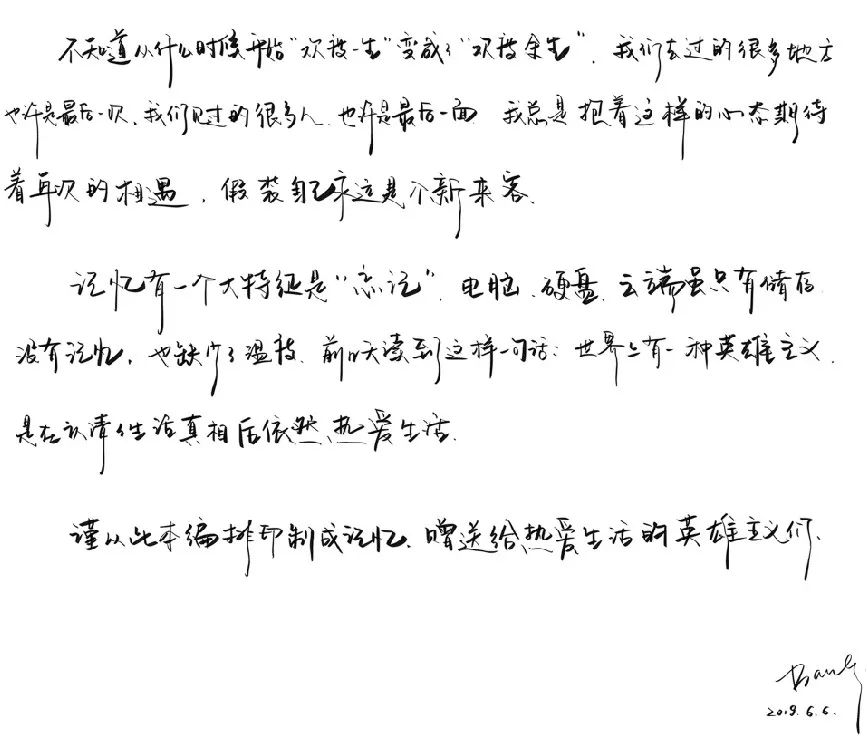 不知道从什么时候开始“欢度一生”变成了“欢度余生”，我们去过的很多地方
也许是最后一次，我们见过的很多人，也许是最后一面 我总是抱着这样的心态期待
着再次的相遇，假装自己永远是个新来客。
记忆有一个大特征是“忘记”，电脑、硬盘、云端虽只有储存
没有记忆，也缺少了温度，前几天读到这样一句话：世界上有一种英雄主义，
是在认清生活真相后依然热爱生活。
谨以此本编排印制成记忆，赠送给热爱生活的英雄主义们。
2019.6.6.